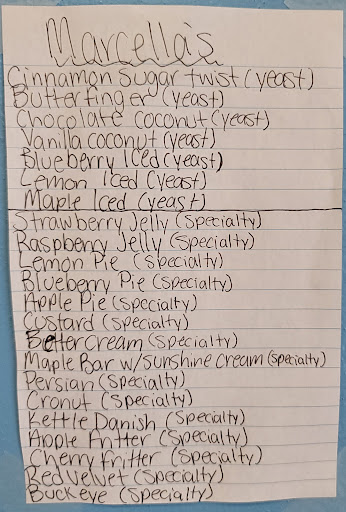 Marcella's
Cinnamon Sugar twist (yeast)
Butterfinger (yeast)
Chocolate coconut (yeast)
Vanilla coconut (yeast)
Blueberry Iced (yeast)
Lemon Iced (yeast)
Maple Iced (yeast)
Strawberry Jelly (Specialty)
Raspberry Jelly (Specialty)
Lemon Pie (Specialty)
Blueberry Pie (Specialty)
Apple Pie (Specialty)
Custard (Specialty)
Bettercream (Specialty)
Maple Bar w/sunshine cream (Specialty)
Persian (Specialty)
Cronut (Specialty)
Kettle Danish (Specialty)
Apple Fritter (Specialty)
Cherry fritter (Specialty)
Red Velvet (Specialty)
Buckeye (Specialty)